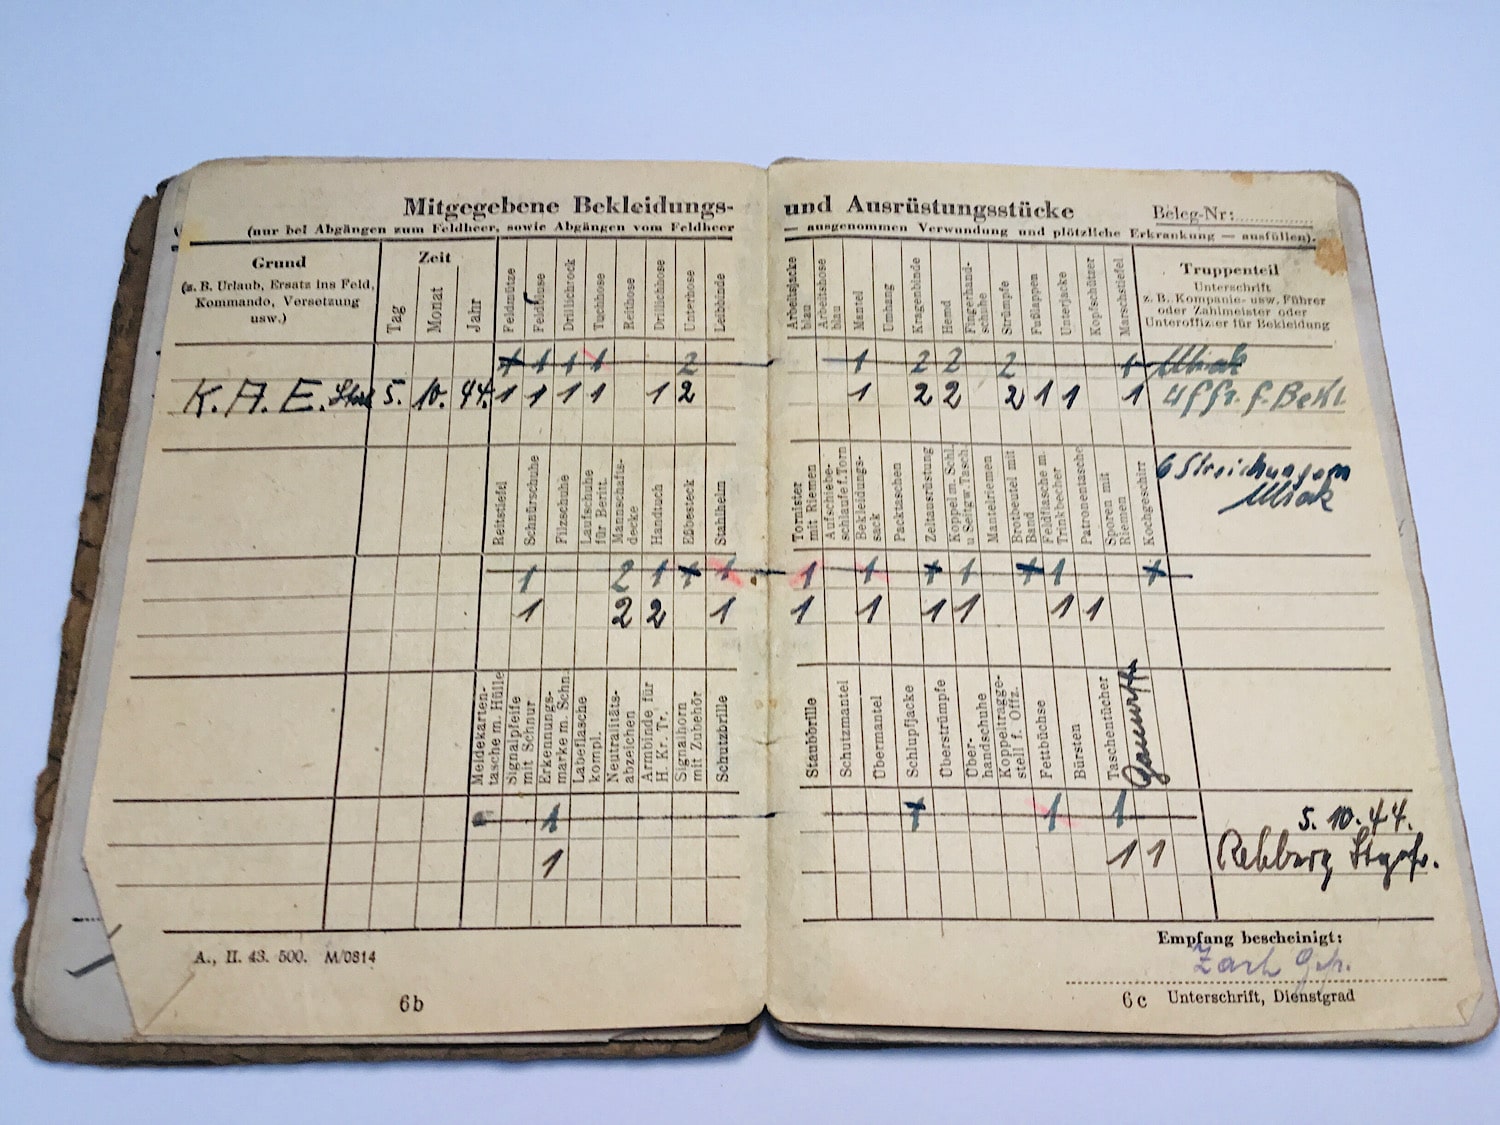 Mitgegebene Bekleidungs- und Ausrüstungsstücke
Beleg-Nr:
(nur bei Abgängen zum Feldheer, sowie Abgängen vom Feldheer — ausgenommen Verwundung und plötzliche Erkrankung — ausfüllen).
Grund
(z. B. Urlaub, Ersatz ins Feld,
Kommando, Versetzung
usw.)
Zeit
Tag
Monat
Jahr
Feldmütze
Feldbluse
Drillichrock
Tuchhose
Reithose
Drillichhose
Unterhose
Leibbinde
Arbeitsjacke
blau
Arbeitshose
blau
Mantel
Umhang
Kragenbinde
Hemd
Fingerhand-
schuhe
Strümpfe
Fußlappen
Unterjacke
Kopfschützer
Marschstiefel
Truppenteil
Unterschrift
z. B. Kompanie- usw. Führer
oder Zahlmeister oder
Unteroffizier für Bekleidung
1 1 1 1 2 1 2 2 2 1
K. A. E. 5. 10. 44. 1 1 1 1 1 2 1 2 2 2 1 1 1 Uffz. f. Bekl
Reitstiefel
Schnürschuhe
Filzschuhe
Laufschuhe
für Beritt.
Mannschafts-
decke
Handtuch
Eßbesteck
Stahlhelm
Tornister
mit Riemen
Aufschiebe-
schlaufe f. Torn
Bekleidungs-
sack
Packtaschen
Zeltausrüstung
Koppel m. Schl.
u. Seitgw. Tasch.
Mantelriemen
Brotbeutel mit
Band
Feldflasche m.
Trinkbecher
Patronentasche
Sporen mit
Riemen
Kochgeschirr
6 Streichungen
1 2 1 1 1 1 1 1 1 1 1 1
1 2 2 1 1 1 1 1 1 1
Meldekarten-
tasche m. Hülle
Signalpfeife
mit Schnur
Erkennungs-
marke m. Schn.
Labeflasche
kompl.
Neutralitäts-
abzeichen
Armbinde für
H. Kr. Tr.
Signalhorn
mit Zubehör
Schutzbrille
Staubbrille
Schutzmantel
Übermantel
Schlupfjacke
Überstrümpfe
Über-
handschuhe
Koppeltragge-
stell f. Offz.
Fettbüchse
Bürsten
Taschentücher
1 1 1 1 5. 10. 44.
1 1 1 Rehberg
Empfang bescheinigt:
Zach Gefr.
A., II. 43. 500. M/0814
6b
6c Unterschrift, Dienstgrad